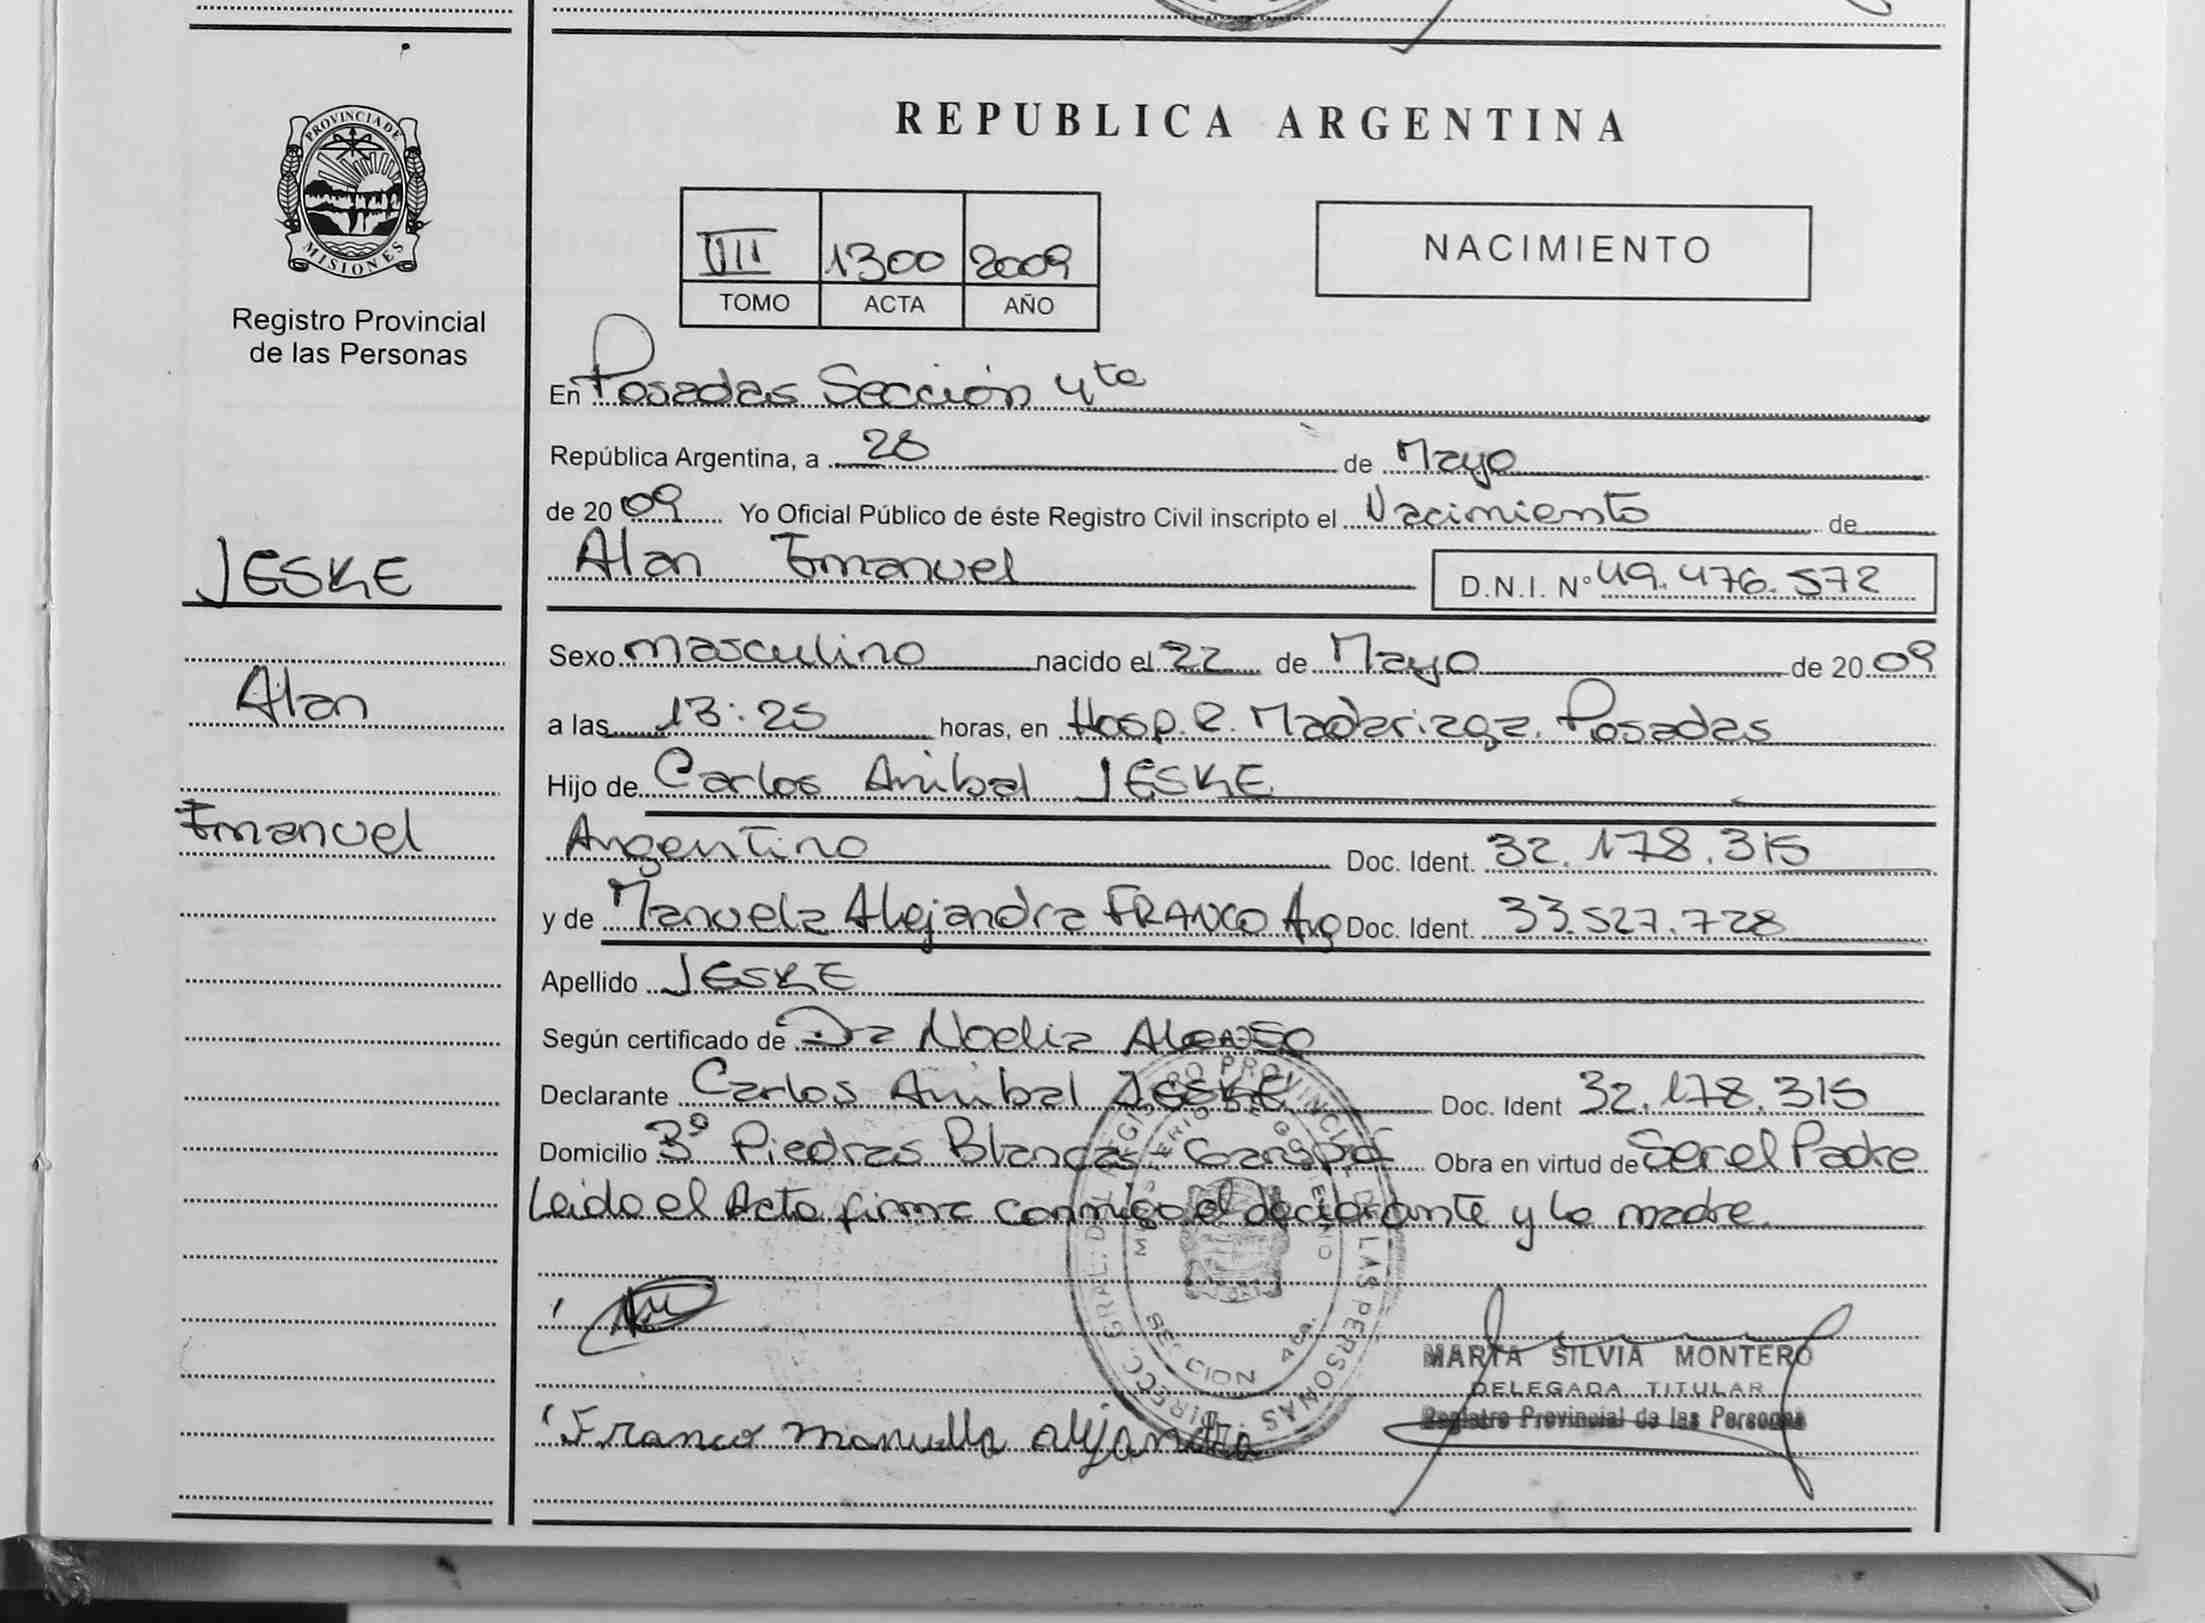 PROVINCIA DE
MISIONES
Registro Provincial
de las Personas
JESKE
Alan
Emanuel
REPUBLICA ARGENTINA
VIII 1300 2009
TOMO ACTA AÑO
NACIMIENTO
En Posadas Sección 4ta
República Argentina, a 28 de Mayo
de 2009 Yo Oficial Público de éste Registro Civil inscripto el Nacimiento de
Alan Emanuel D.N.I. N° 49.476.572
Sexo masculino nacido el 22 de Mayo de 2009
a las 13:25 horas, en Hosp. R. Madariaga. Posadas
Hijo de Carlos Anibal JESKE
Argentino Doc. Ident. 32.178.315
y de Manuela Alejandra FRANCO Arg Doc. Ident. 33.527.728
Apellido JESKE
Según certificado de Dra Noelia Alonso
Declarante Carlos Anibal JESKE Doc. Ident 32.178.315
Domicilio 3º Piedras Blancas - Garupá Obra en virtud de Ser el Padre
Leido el Acta firma conmigo el declarante y la madre.
DIRECC. GRAL. DEL REGISTRO PROVINCIAL DE LAS PERSONAS
MINISTERIO DE GOBIERNO
SECCION 4ta.
MARTA SILVIA MONTERO
DELEGADA TITULAR
Registro Provincial de las Personas
Franco Manuela Alejandra